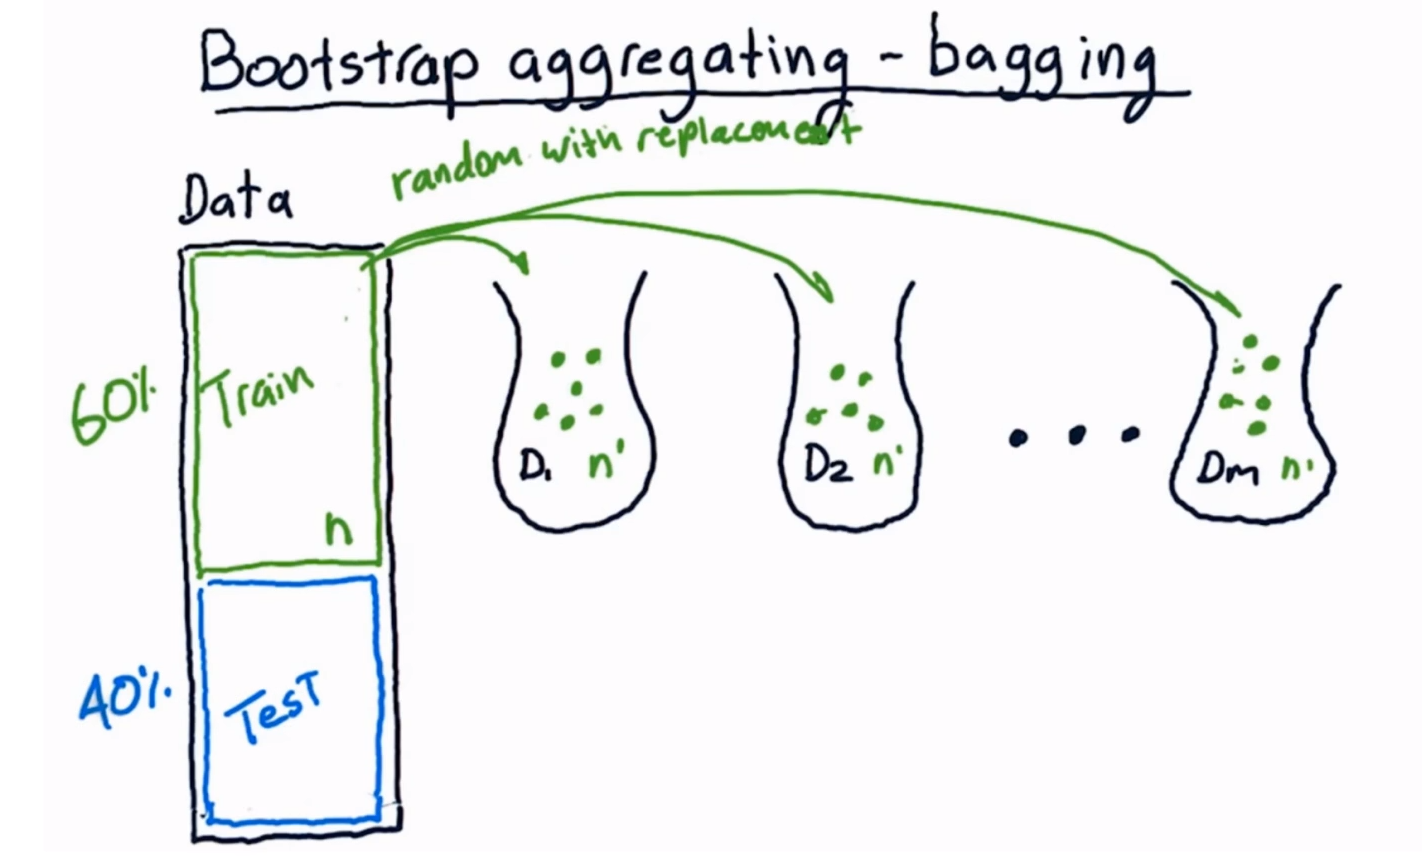 Bootstrap aggregating - bagging
random with replacement
Data
60% Train
n
D1 n'
D2 n'
...
Dm n'
40% Test